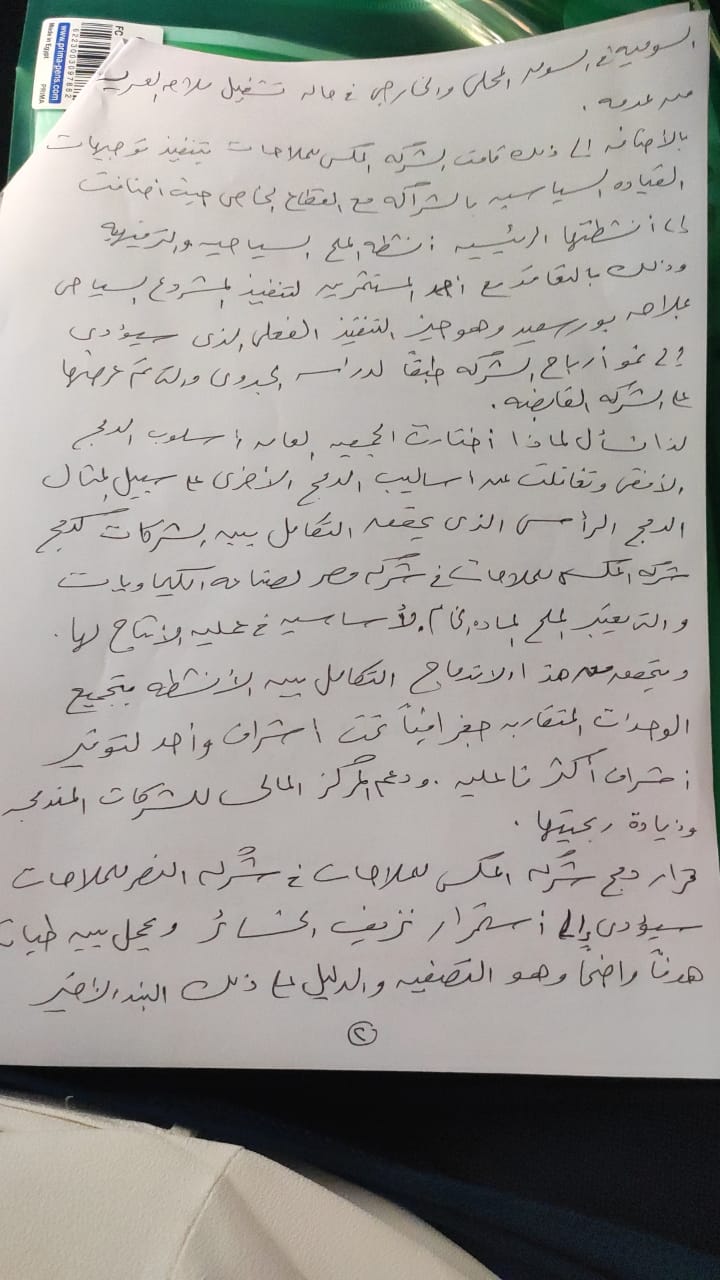 السوقية في السوق المحلى والخارجى في حاله تشغيل ملاحه العريش
من عدمه .
بالأضافه الى ذلك قامت الشركه المكس للملاحات بتنفيذ توجيهات
القياده السياسيه بالشراكه مع القطاع الخاص حيث أضافت
الى أنشطتها الرئيسيه أنشطه الملح السياحيه والترفيهيه
وذلك بالتعاقد مع احد المستثمرين لتنفيذ المشروع السياحى
بملاحه بورسعيد وهو حيز التنفيذ الفعلى الذى سيؤدى
الى نمو أرباح الشركه طبقاً لدراسه الجدوى والتى تم عرضها
على الشركه القابضه .
لذا نسأل لماذا أختارت الجمعيه العامه أسلوب الدمج
الأفقى وتغافلت عن اساليب الدمج الأخرى على سبيل المثال
الدمج الرأسى الذى يحقق التكامل بين الشركات كدمج
شركه المكس للملاحات في شركه مصر لصناعه الكيماويات
والتى يعتبر الملح الماده الخام الأساسيه في عمليه الأنتاج لها .
ويتحقق من هذا الاندماج التكامل بين الأنشطه بتجميع
الوحدات المتقاربه جغرافياً تحت اشراف واحد لتوفير
أشراف أكثر فاعليه . ودعم المركز المالى للشركات المندمجه
وزيادة ربحيتها .
قرار دمج شركه المكس للملاحات في شركه النصر للملاحات
سيؤدى إلى أستمرار نزيف الخسائر ويحمل بين طيات
هدفاً واضحاً وهو التصفيه والدليل على ذلك البند الأخير
٢
FC
Made in Egypt
www.prima-pens.com
6223003097662
PRIMA